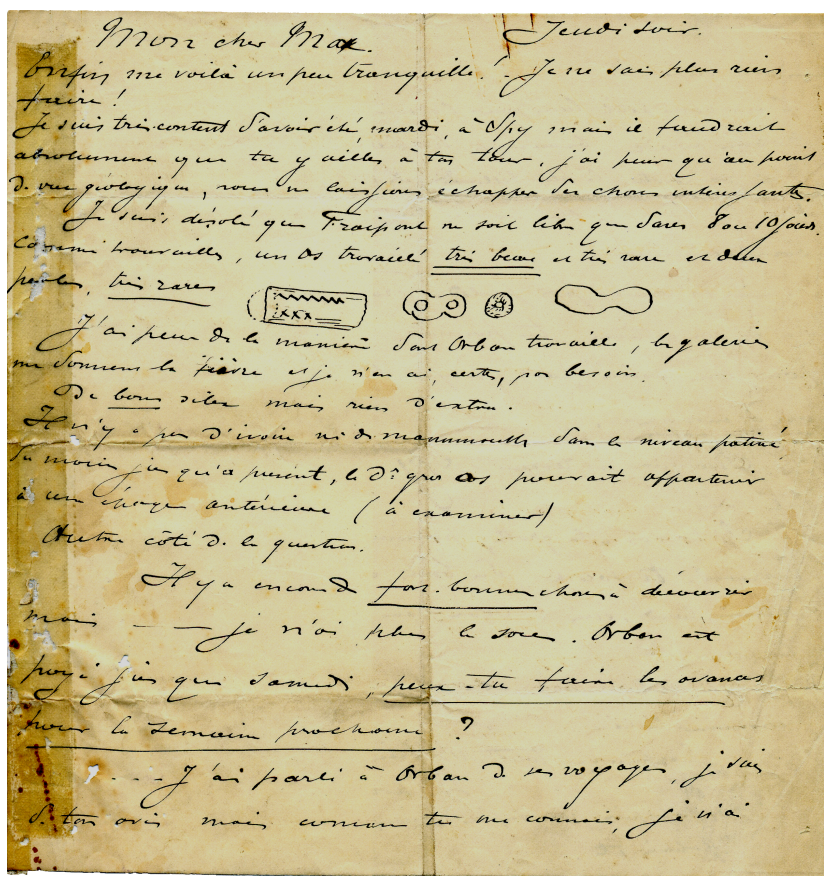 Mon cher Max. Jeudi soir.
Enfin me voilà un peu tranquille ! Je ne sais plus rien
faire !
Je suis très content d'avoir été, mardi, à Spy mais il faudrait
absolument que tu y ailles à ton tour, j'ai peur qu'au point
de vue géologique, nous ne laissions échapper des choses intéressantes.
Je suis désolé que Fraipont ne soit libre que dans 8 ou 10 jours.
Comme trouvailles, un os travaillé très beau et très rare et deux
perles, très rares
xxx
J'ai peur de la manière dont Orban travaille, les galeries
me donnent la fièvre et je n'en ai, certes, pas besoin.
De bons silex mais rien d'extra.
Il n'y a pas d'ivoire ni de mammouth dans le niveau patiné,
du moins jusqu'à présent, le dr gros os pourrait appartenir
à un étage antérieur (à examiner)
Autre côté de la question.
Il y a encore de fort bonnes choses à découvrir
mais —— je n'ai plus le sou. Orban est
payé jusque samedi, peux-tu faire les avances
pour la semaine prochaine ?
.... J'ai parlé à Orban de ses voyages, je suis
de ton avis mais comme tu me connais, je n'ai